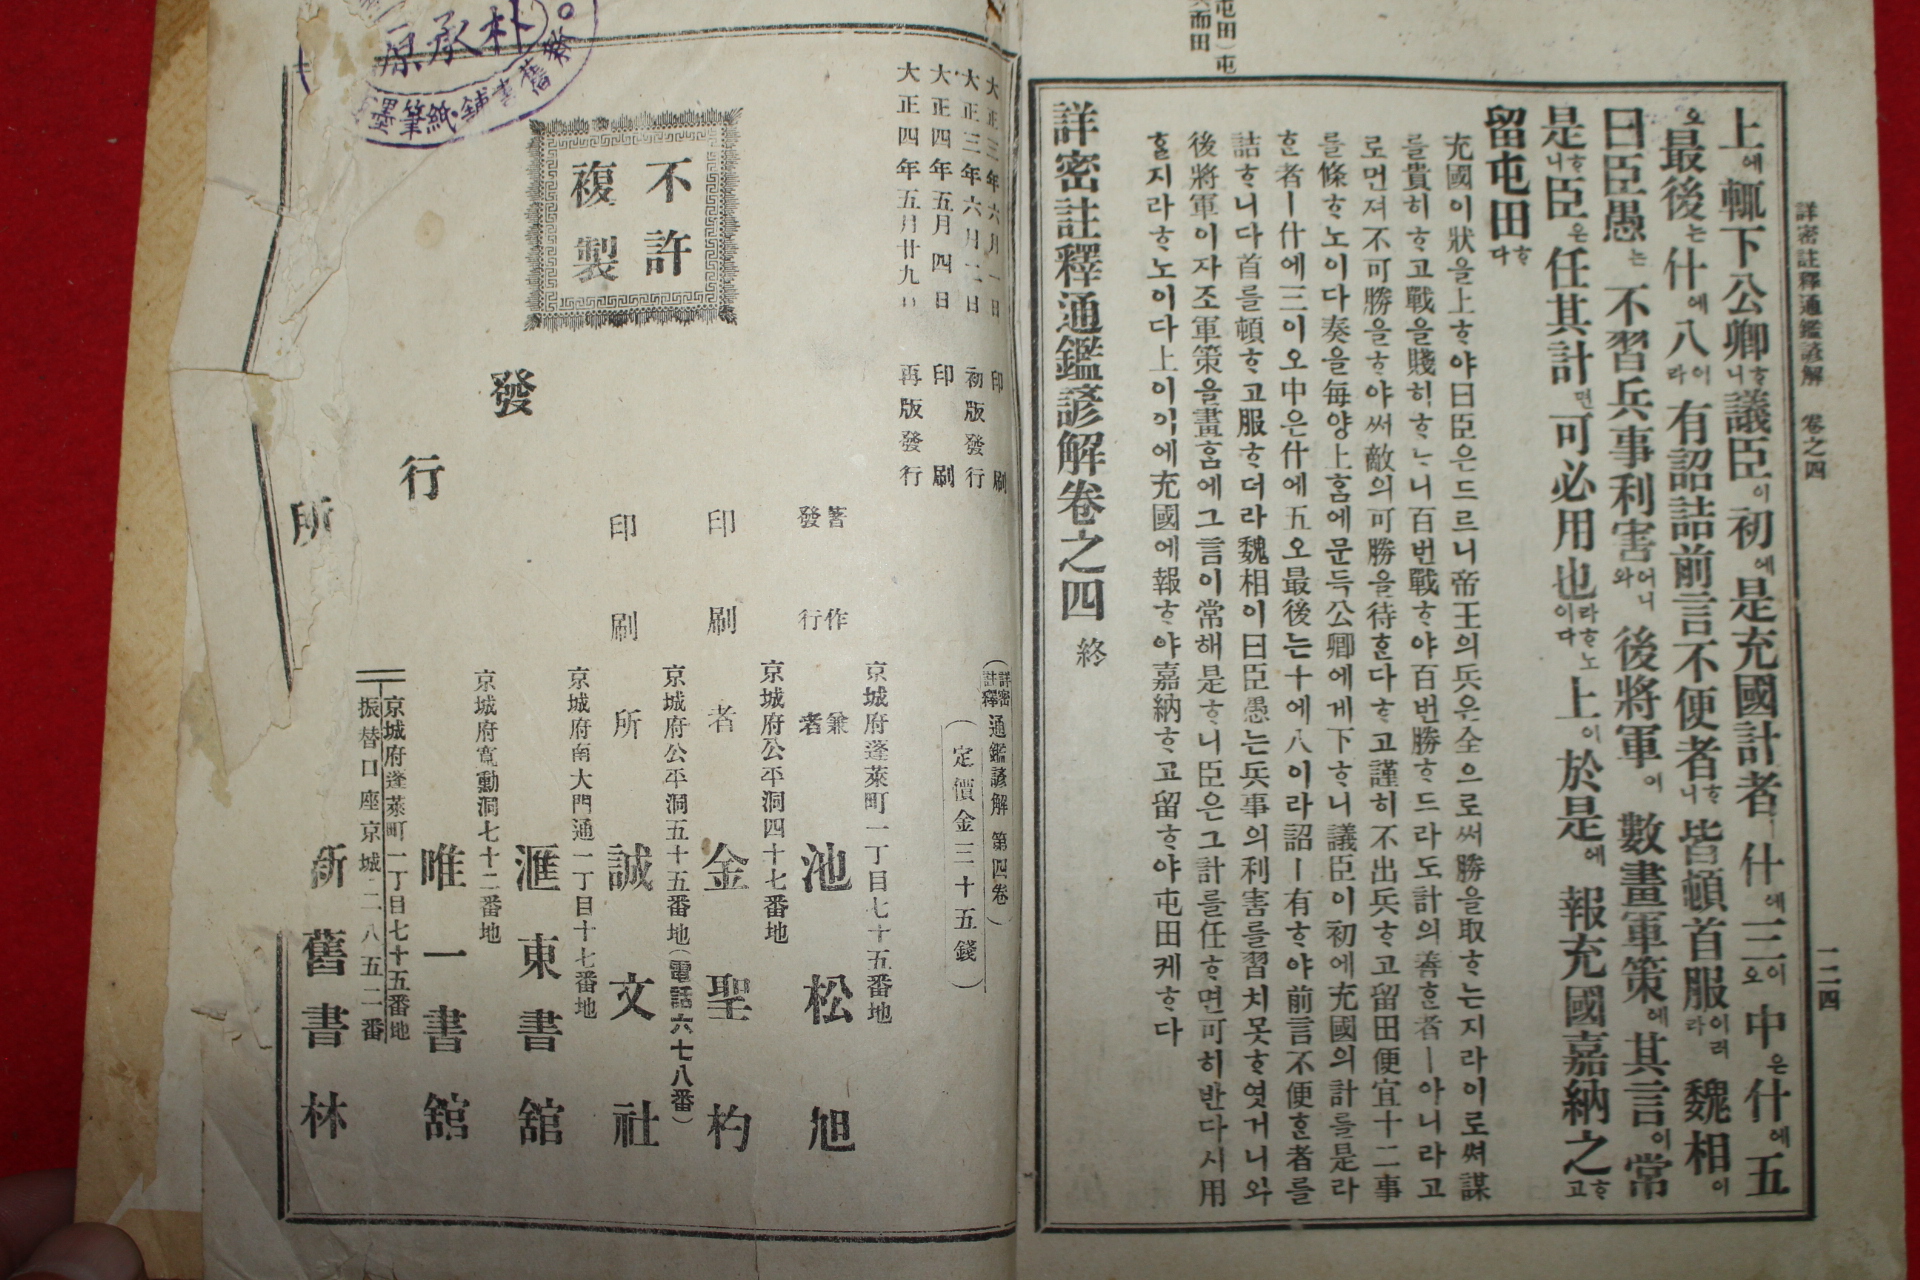 詳密註釋通鑑諺解 卷之四 一二四
屯田)屯
兵而田
上에輒下公卿ᄒᆞ니議臣이初에是充國計者ㅣ什에三이오中은什에五
오最後는什에八이라有詔詰前言不便者ᄒᆞ니皆頓首服이러라魏相이
曰臣愚는不習兵事利害어니와後將軍이數畫軍策에其言이常
是ᄒᆞ니臣은任其計면可必用也이라다ᄒᆞ노上이於是에報充國嘉納之ᄒᆞ고
留屯田ᄒᆞ다
充國이狀을上ᄒᆞ야曰臣은드르니帝王의兵은全으로써勝을取ᄒᆞ는지라이로써謀
를貴히ᄒᆞ고戰을賤히ᄒᆞᄂᆞ니百번戰ᄒᆞ야百번勝ᄒᆞ드라도計의善ᄒᆞᆫ者ㅣ아니라고
로먼져不可勝을ᄒᆞ야써敵의可勝을待ᄒᆞᆫ다ᄒᆞ고謹히不出兵ᄒᆞ고留田便宜十二事
를條ᄒᆞ노이다奏을每양上ᄒᆞᆷ에문득公卿에게下ᄒᆞ니議臣이初에充國의計를是라
ᄒᆞᆫ者ㅣ什에三이오中은什에五오最後는十에八이라詔ㅣ有ᄒᆞ야前言不便ᄒᆞᆫ者를
詰ᄒᆞ니다首를頓ᄒᆞ고服ᄒᆞ더라魏相이曰臣愚는兵事의利害를習치못ᄒᆞ엿거니와
後將軍이자조軍策을畫ᄒᆞᆷ에그言이常해是ᄒᆞ니臣은그計를任ᄒᆞ면可히반다시用
ᄒᆞᆯ지라ᄒᆞ노이다上이이에充國에報ᄒᆞ야嘉納ᄒᆞ고留ᄒᆞ야屯田케ᄒᆞ다
詳密註釋通鑑諺解卷之四 終
大正三年六月一日 印刷
大正三年六月二日 初版發行
大正四年五月四日 印刷
大正四年五月廿九日 再版發行
(詳密註釋通鑑諺解 第四卷)
(定價金三十五錢)
不許
複製
京城府蓬萊町一丁目七十五番地
著作兼
發行者 池松旭
京城府公平洞四十七番地
印刷者 金聖杓
京城府公平洞五十五番地(電話六七八番)
印刷所 誠文社
京城府南大門通一丁目十七番地
滙東書舘
京城府寬勳洞七十二番地
唯一書舘
發行所
京城府蓬萊町一丁目七十五番地
振替口座京城二二八五二番
新舊書林
朴承原
新舊書舖・紙筆墨